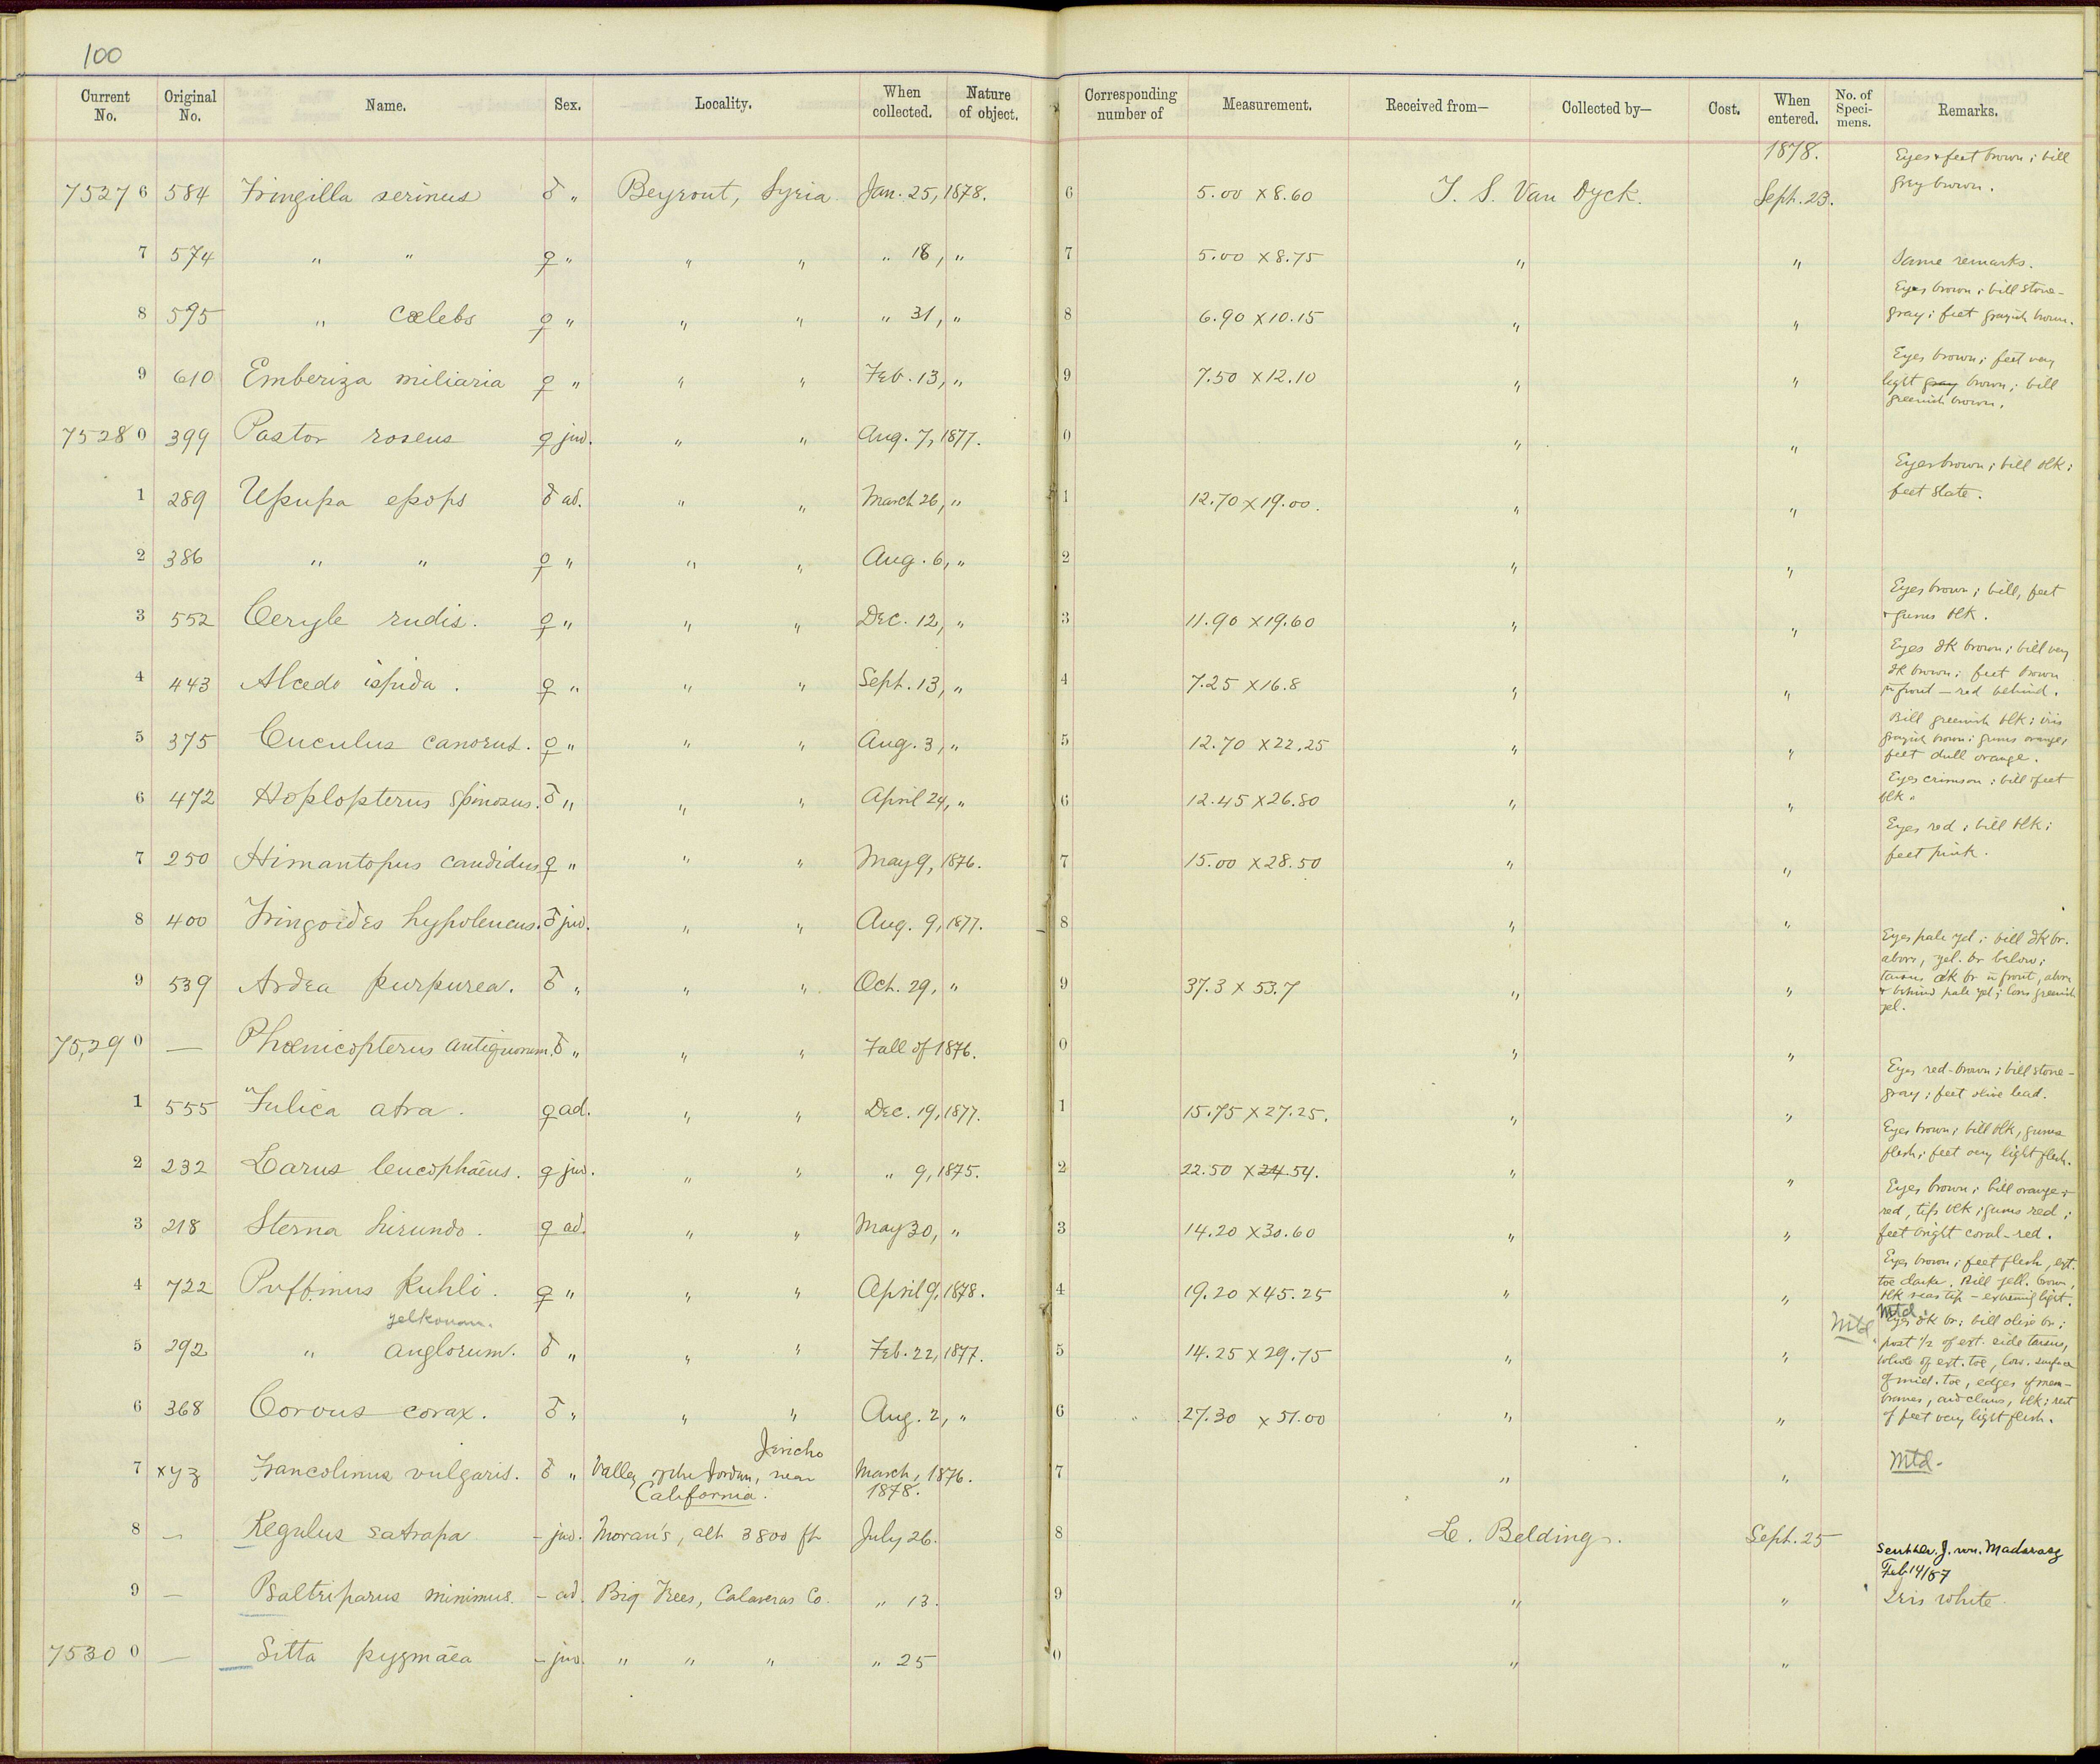 100
Current No. Original No. Name. Sex. Locality. When collected. Nature of object. Corresponding number of Measurement. Received from— Collected by— Cost. When entered. No. of Specimens. Remarks.
1878. Eyes & feet brown; bill
7527 6 584 Fringilla serinus ♂ " Beyrout, Syria Jan. 25, 1878. 6 5.00 x 8.60 Sept. 23. grey brown.
7 574 " " ♀ " " " " 18, " 7 5.00 x 8.75 " " Same remarks.
Eyes brown; bill stone-
8 595 " cælebs ♀ " " " " 31, " 8 6.90 x 10.15 " " gray; feet grayish brown.
Eyes brown; feet very
9 610 Emberiza miliaria ♀ " " " Feb. 13, " 9 7.50 x 12.10 " " light gray brown; bill
greenish brown.
7528 0 399 Pastor roseus ♀ juv. " " Aug. 7, 1877. 0 " "
Eyes brown; bill blk;
1 289 Upupa epops ♂ ad. " " March 26, " 1 12.70 x 19.00. " " feet slate.
2 386 " " ♀ " " " Aug. 6, " 2 " "
Eyes brown; bill, feet
3 552 Ceryle rudis. ♀ " " " Dec. 12, " 3 11.90 x 19.60 " " & gums blk.
Eyes dk brown; bill very
dk brown; feet brown
4 443 Alcedo ispida. ♀ " " " Sept. 13, " 4 7.25 x 16.8 " " in front — red behind.
Bill greenish blk; iris
5 375 Cuculus canorus. ♀ " " " Aug. 3, " 5 12.70 x 22.25 " " grayish brown; gums orange,
feet dull orange.
Eyes crimson; bill & feet
6 472 Hoplopterus spinosus. ♂ " " " April 24, " 6 12.45 x 26.80 " " blk.
Eyes red; bill blk;
7 250 Himantopus candidus ♀ " " " May 9, 1876. 7 15.00 x 28.50 " " feet pink.
8 400 Tringoides hypoleucus. ♂ juv. " " Aug. 9, 1877. 8 " "
Eyes pale yel.; bill dk br.
above, yel. br below;
9 539 Ardea purpurea. ♂ " " " Oct. 29, " 9 37.3 x 53.7 " " tarsus dk br in front, above
& behind pale yel; greenish
yel.
75,29 0 — Phœnicopterus antiquorum. ♂ " " " Fall of 1876. 0 " "
Eyes red-brown; bill stone-
1 555 Fulica atra. ♀ ad. " " Dec. 19, 1877. 1 15.75 x 27.25. " " gray; feet olive lead.
Eyes brown; bill blk, gums
2 232 Larus leucophæus. ♀ juv. " " " 9, 1875. 2 22.50 x 24 54. " " flesh; feet very light flesh.
Eyes brown; bill orange-
red, tip blk; gums red;
3 218 Sterna hirundo. ♀ ad. " " May 30, " 3 14.20 x 30.60 " " feet bright coral-red.
Eyes brown; feet flesh, ext.
toe darker. Bill yell. brown,
4 722 Puffinus Kuhli. ♀ " " " April 9, 1878. 4 19.20 x 45.25 " " blk near tip — extremity light.
yelkouan. Mtd. Mtd.
Eyes dk br; bill olive br;
5 292 " anglorum. ♂ " " " Feb. 22, 1877. 5 14.25 x 29.75 " " post ½ of ext. side tarsus,
whole of ext. toe, low. surface
of mid. toe, edges of mem-
branes, and claws, blk; rest
6 368 Corvus corax. ♂ " " " Aug. 2, " 6 27.30 x 51.00 " " of feet very light flesh.
Jericho
7 xyz Francolinus vulgaris. ♂ " Valley of the Jordan, near March, 1876. 7 " " Mtd.
California. 1878.
8 — Regulus satrapa — juv. Moran's, alt 3800 ft July 26. 8 L. Belding. Sept. 25
Madarasz
Feb 14/87
9 — Psaltriparus minimus. — ad. Big Trees, Calaveras Co. " 13. 9 " " Iris white.
7530 0 — Sitta pygmæa — juv. " " " " 25 0 " "